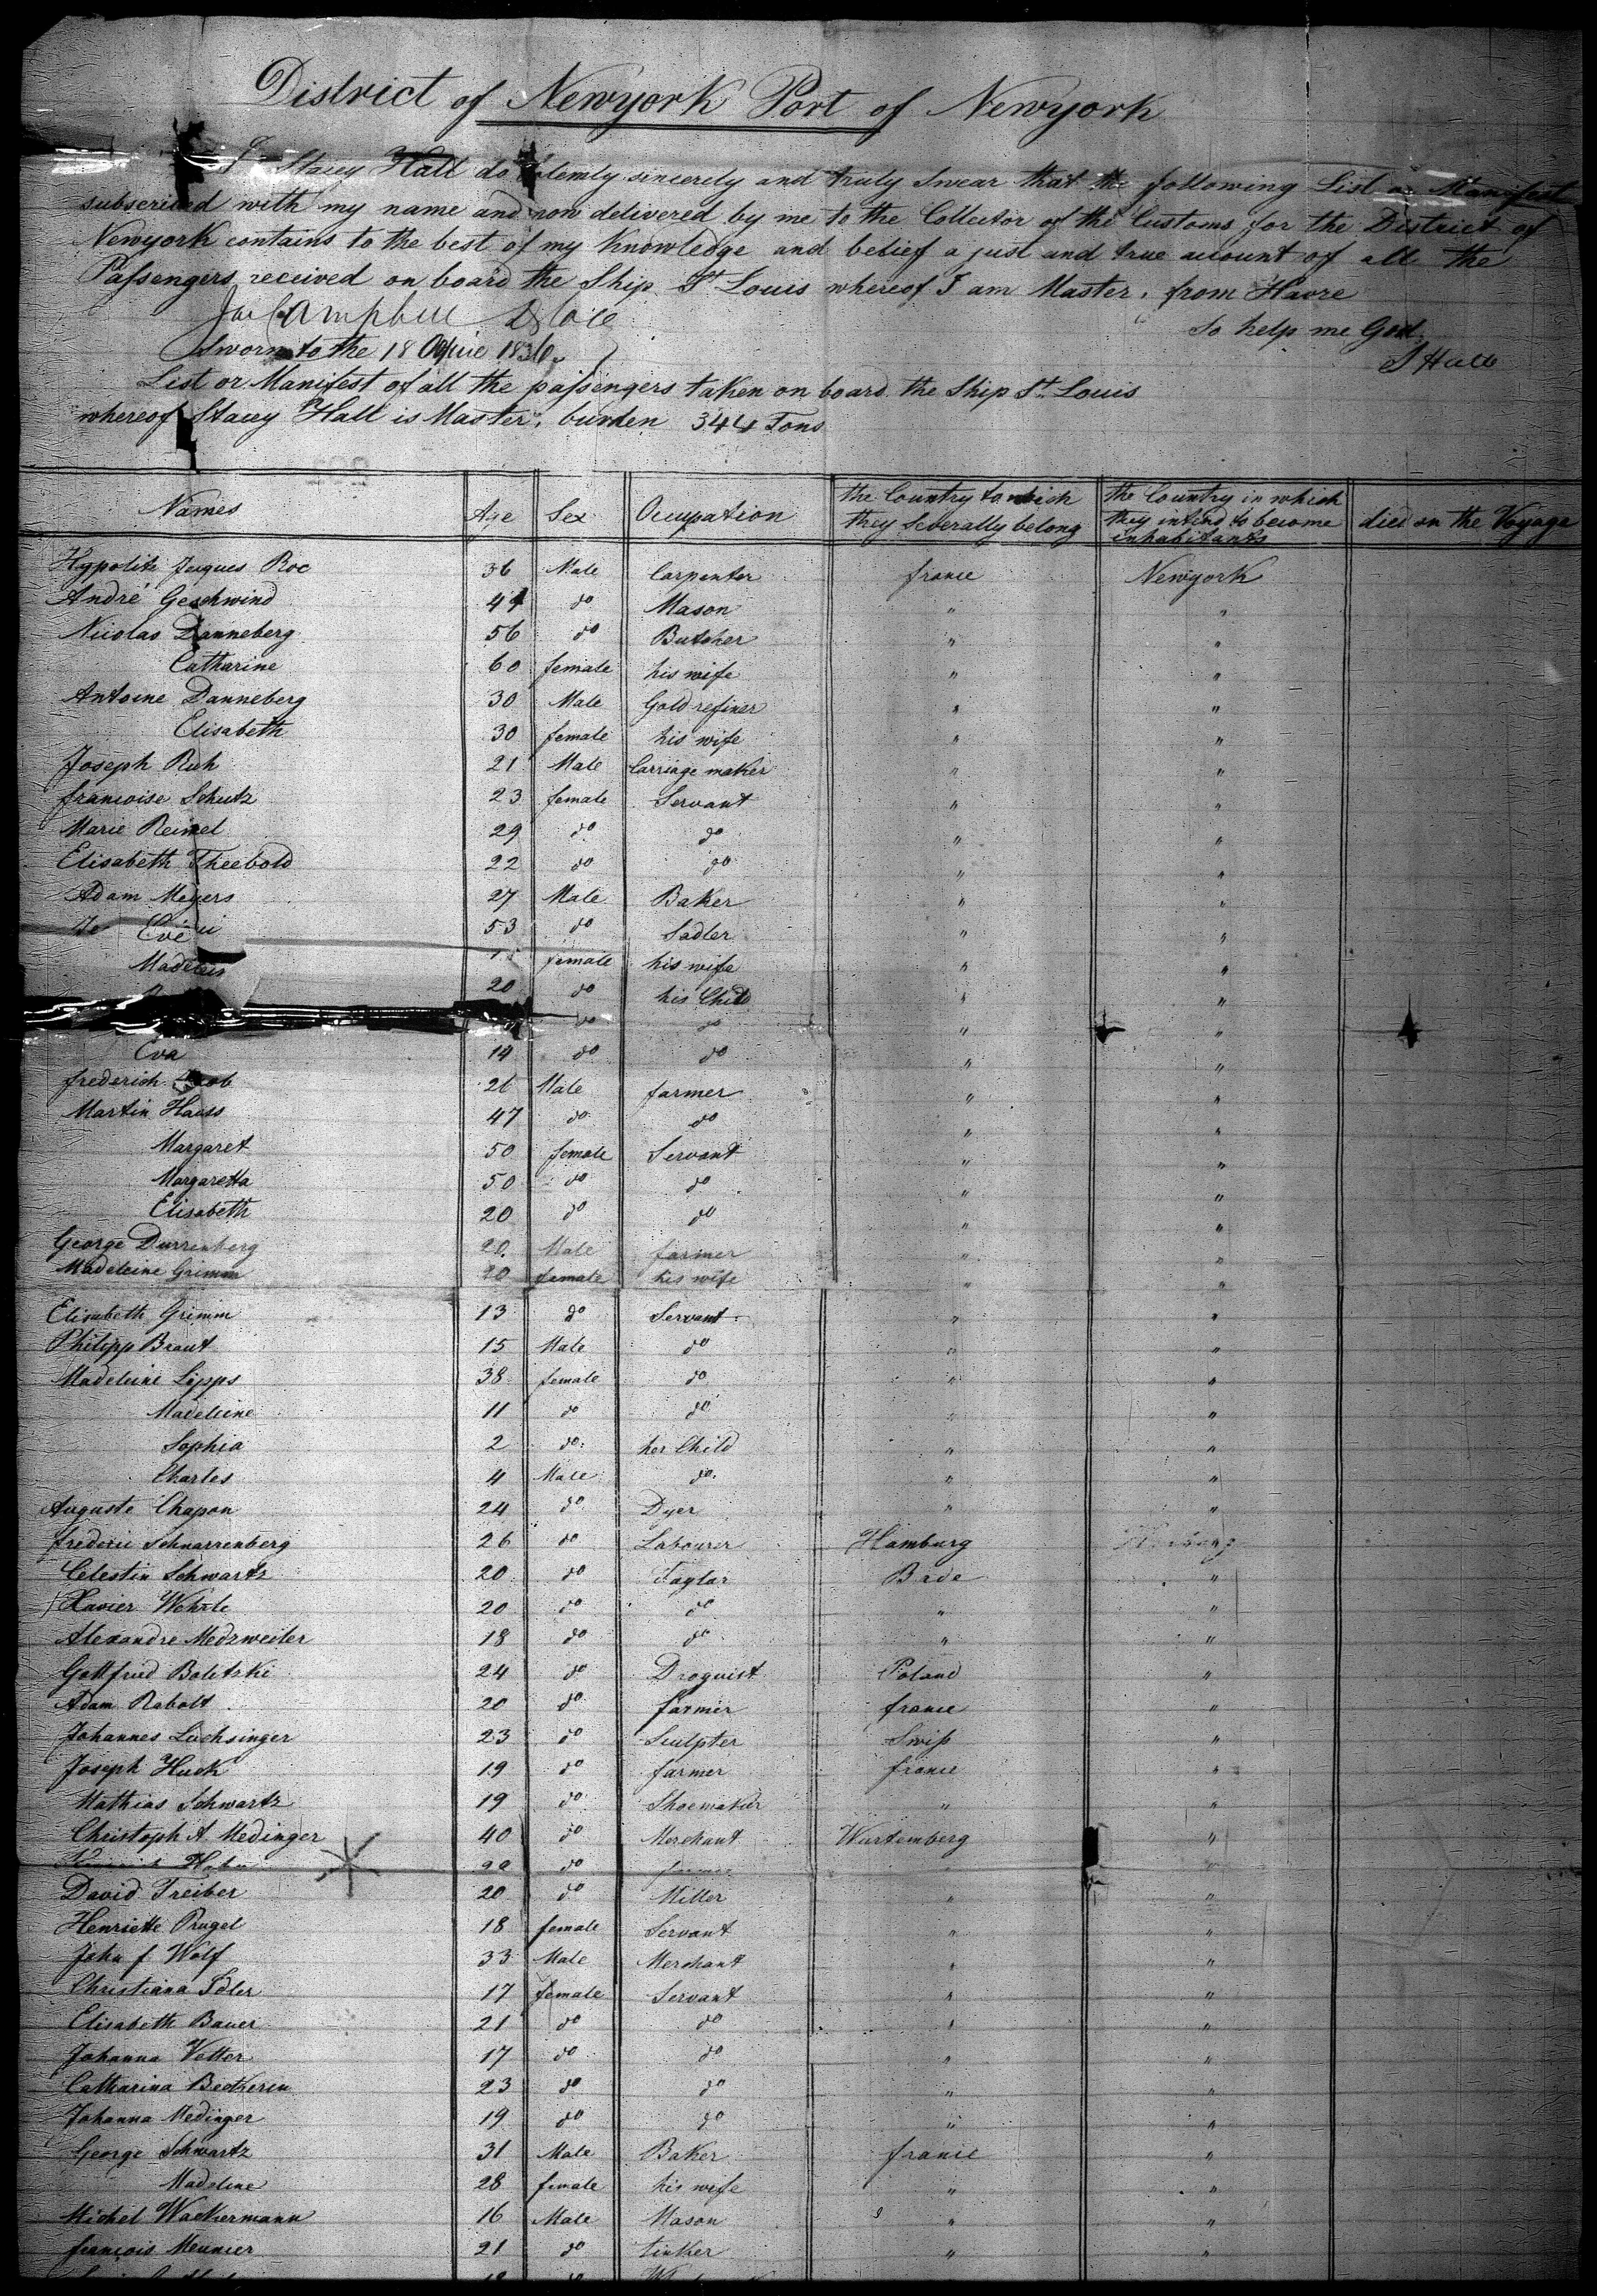 District of Newyork Port of Newyork
I Stacey Hall do solemly sincerely and truly Swear that the following List or Manifest
subscribed with my name and now delivered by me to the Collector of the Customs for the District of
Newyork contains to the best of my Knowledge and belief a just and true account of all the
Passengers received on board the Ship St Louis whereof I am Master, from Havre
So help me God
Sworn to the 18 1836
S Hall
List or Manifest of all the passengers taken on board the Ship St Louis
whereof Stacey Hall is Master, burden 344 Tons
Names Age Sex Occupation the Country to which they Severally belong the Country in which they intend to become inhabitants died on the Voyage
Hypolite Jacques Roc 36 Male Carpenter france Newyork
André Geschwind 44 do Mason " "
Nicolas Danneberg 56 do Butcher " "
Catharine 60 female his wife " "
Antoine Danneberg 30 Male Gold refiner " "
Elisabeth 30 female his wife " "
Joseph Ruh 21 Male Carriage maker " "
francoise Schutz 23 female Servant " "
Marie Reimel 29 do do " "
Elisabeth Theebold 22 do do " "
Adam Meyers 27 Male Baker " "
53 do Sadler " "
Eve female his wife " "
Madelein 20 do his Child " "
do do " "
Eva 14 do do " "
frederich 26 Male farmer " "
Martin Hauss 47 do do " "
Margaret 50 female Servant " "
Margaretta 50 do do " "
Elisabeth 20 do do " "
George Durrenberg 20 Male farmer " "
Madeleine Grimm 20 female his wife " "
Elisabeth Grimm 13 do Servant " "
Philipp Braut 15 Male do " "
Madeleine Lipps 38 female do " "
Madeleine 11 do do " "
Sophia 2 do her Child " "
Charles 4 Male do " "
Auguste Chapon 24 do Dyer " "
frederic Schnarrenberg 26 do Labourer Hamburg
Celestin Schwartz 20 do Taylar Bade "
Xavier Wehrle 20 do do " "
Alexandre Medzweiler 18 do do " "
Gottfried Boletski 24 do Droguist Poland "
Adam Rabolt 20 do farmer france "
Johannes Luchsinger 23 do Sculpter Swiss "
Joseph Huck 19 do farmer france "
Mathias Schwartz 19 do Shoemaker " "
Christoph A. Medinger 40 do Merchant Wurtemberg "
Hahn do " "
David Treiber 20 do Miller " "
Henriette Prugel 18 female Servant " "
John f Wolf 33 Male Merchant " "
Christiana Idler 17 female Servant " "
Elisabeth Bauer 21 do do " "
Johanna Vetter 17 do do " "
Catharina Beetherin 23 do do " "
Johanna Medinger 19 do do " "
George Schwartz 31 Male Baker france "
Madeline 28 female his wife " "
Michel Wackermann 16 Male Mason " "
francois Meunier 21 do tinker " "